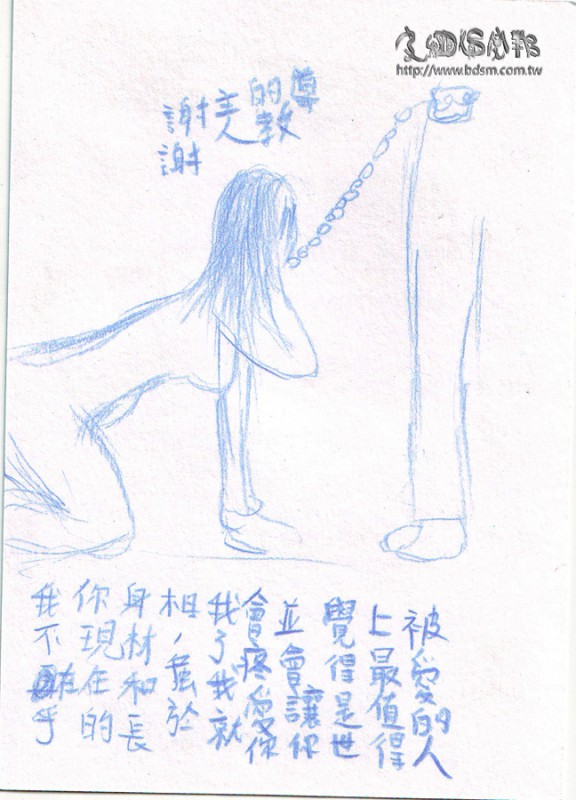 http://www.bdsm.com.tw
謝謝
主人
的教
導
我不在乎
你現在的
身材和長
相，屬於
我了我就
會疼愛你
並會讓你
覺得是世
上最值得
被愛的人